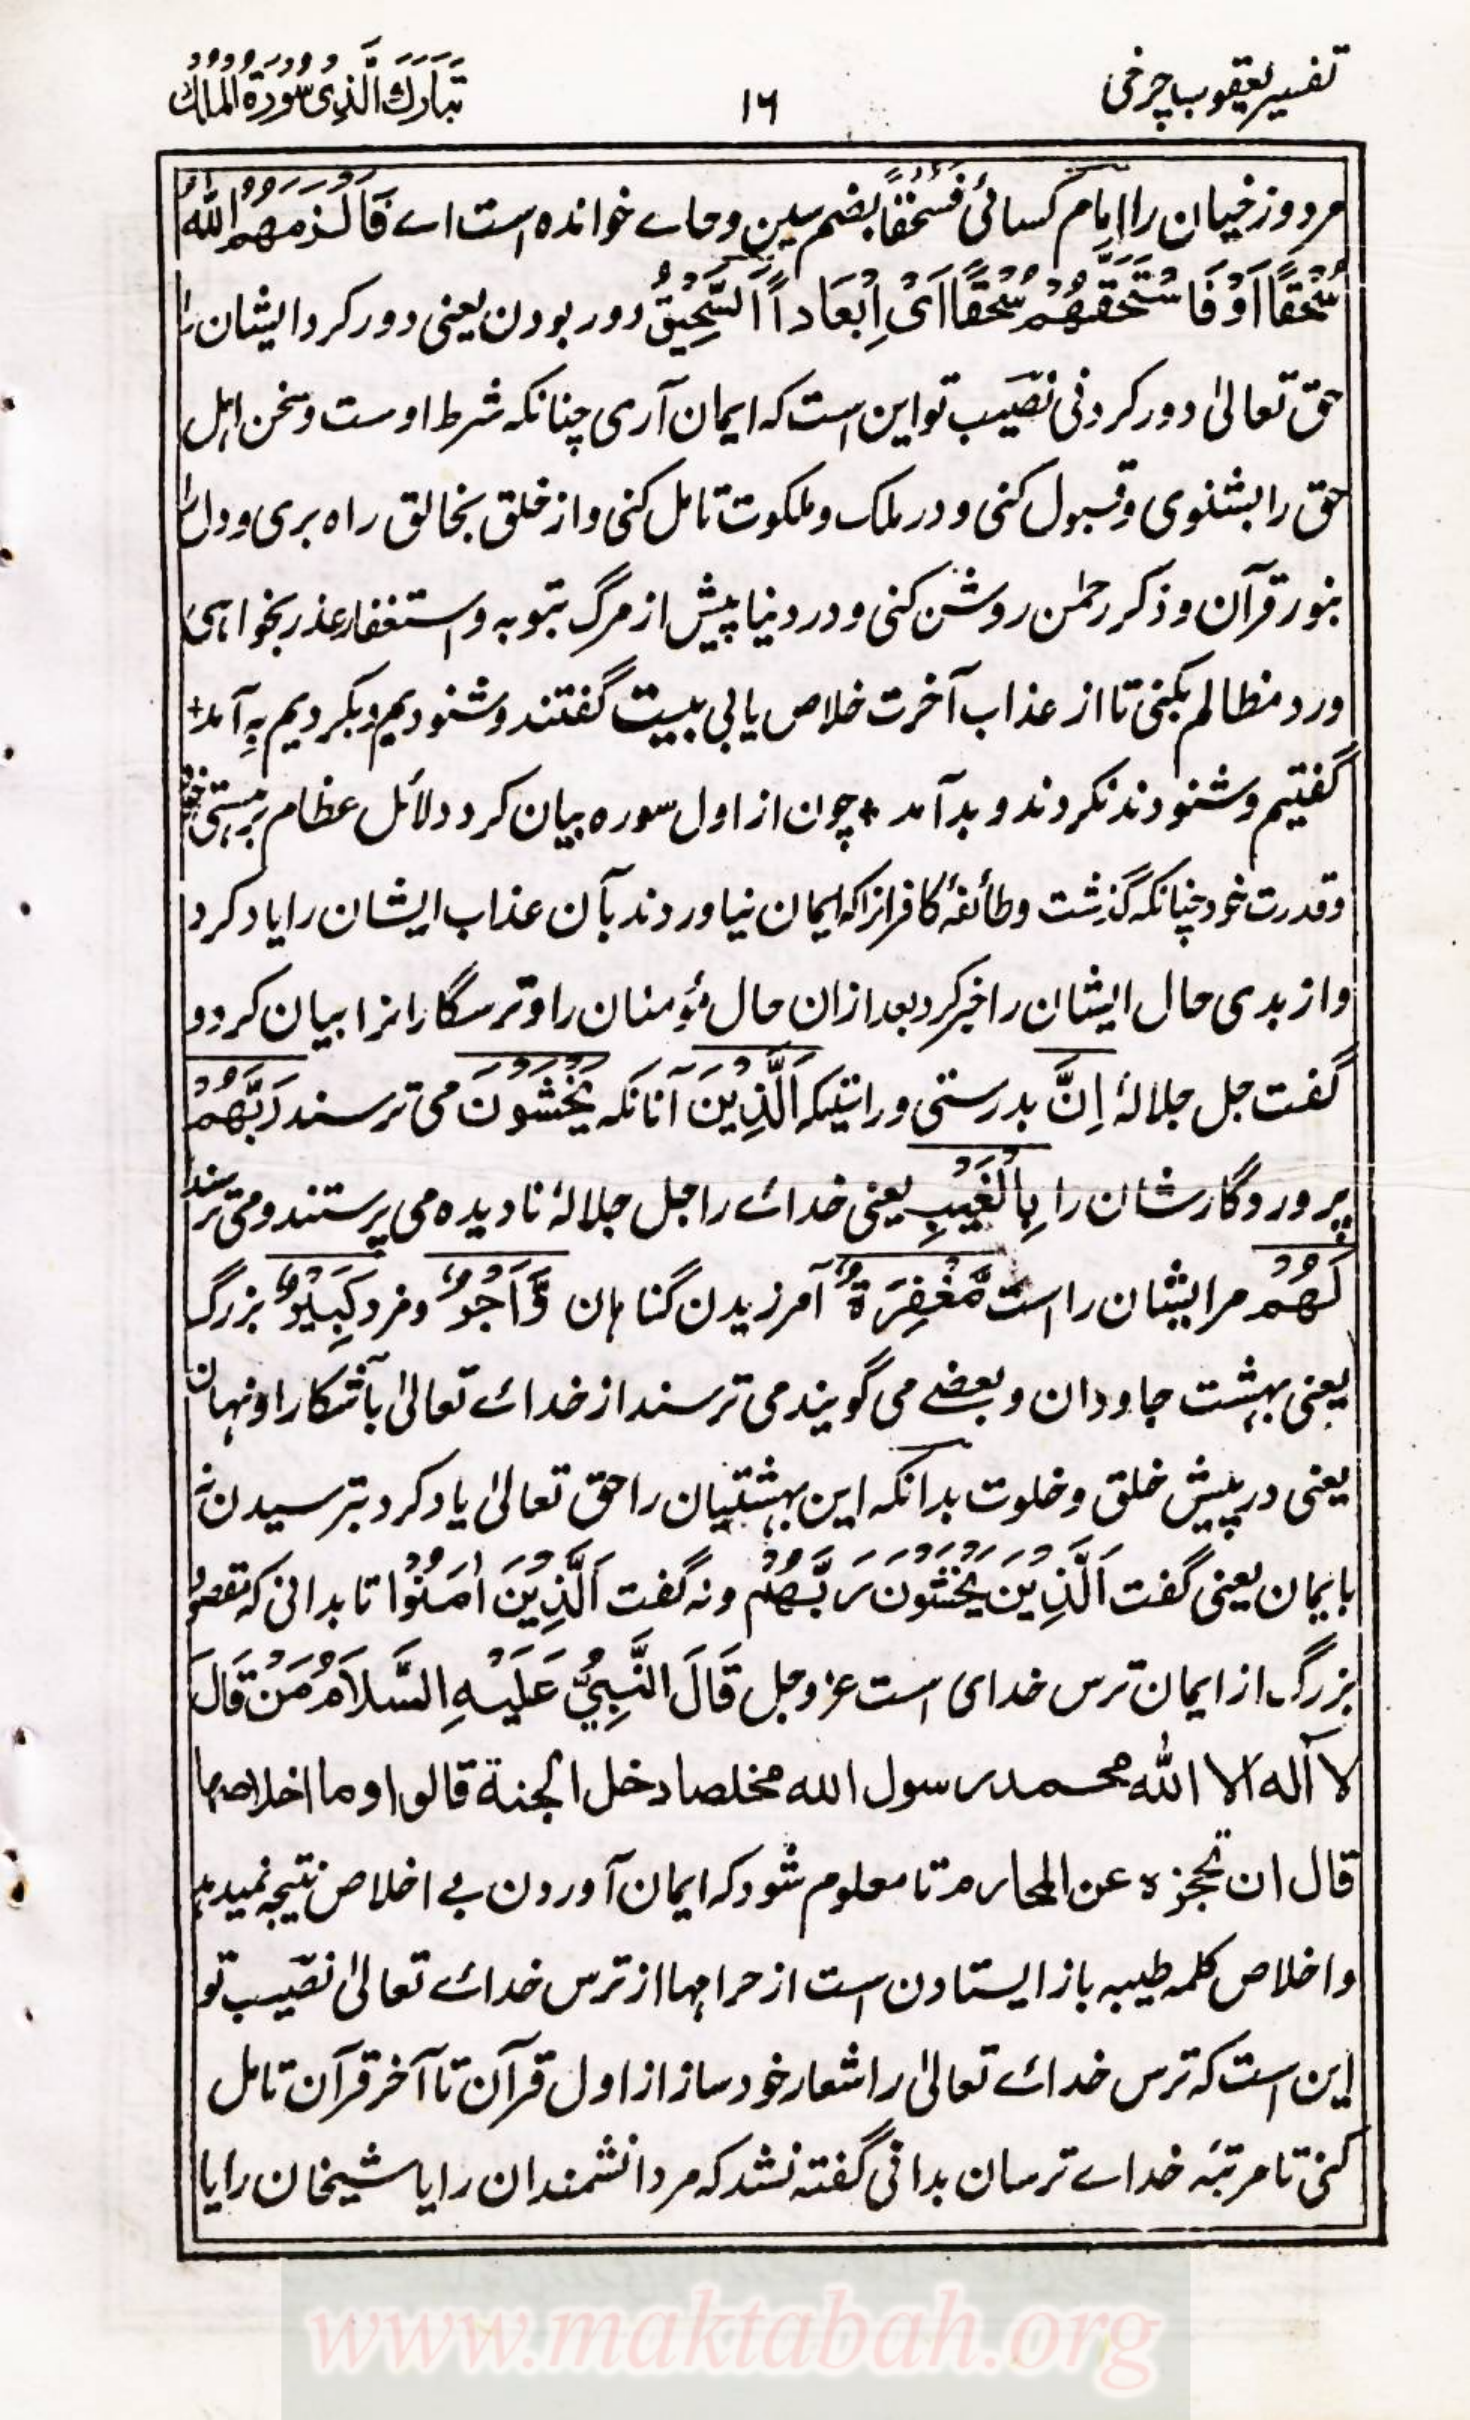 تفسیر یعقوب چرخی
۱۶
تَبَارَكَ الَّذِی سُوْرَةُ الْمُلْكُ
مر دوزخیان را امام کسائی فَسُحُقًا بضم سین و حاے خوانده است اے فَالْزَمَهُمُ اللّٰهُ
سُحْقًا اَوْ فَاسْتَحَقَّهُمْ سُحْقًا اَیْ اِبْعَاداً اَلسَّحِیْقُ دور بودن یعنی دور کرد ایشان را
حق تعالیٰ دور کردنی نصیب تو این است که ایمان آری چنانکه شرط اوست و سخن اهل
حق را بشنوی و قبول کنی و در ملک و ملکوت تامل کنی و از خلق بخالق راه بری و دل را
بنور قرآن و ذکر رحمٰن روشن کنی و در دنیا پیش از مرگ بتوبه و استغفار عذر بخواهی
و رد مظالم بکنی تا از عذاب آخرت خلاص یابی بیت گفتند و شنودیم و بکردیم بِه آمد+
گفتیم و شنودند نکردند و بد آمد + چون از اول سوره بیان کرد دلائل عظام بر هستی خود
و قدرت خود چنانکه گذشت و طائفهٔ کافرانرا که ایمان نیاوردند بآن عذاب ایشان را یاد کرد
و از بدی حال ایشان را خبر کرد بعد ازان حال مؤمنان را و ترسگارانرا بیان کرد و
گفت جل جلالهٔ اِنَّ بدرستی و راستیکه اَلَّذِیْنَ آنانکه یَخْشَوْنَ می ترسند رَبَّهُمْ
پروردگارشان را بِالْغَیْبِ یعنی خدائے را جل جلالهٔ نادیده می پرستند و می ترسند
لَهُمْ مر ایشان را است مَّغْفِرَةٌ آمرزیدن گناهان وَّاَجْرٌ و مزد کَبِیْرٌ بزرگ
یعنی بهشت جاودان و بعضے می گویند می ترسند از خدائے تعالیٰ بآشکارا و نهان
یعنی در پیش خلق و خلوت بدانکه این بهشتیان را حق تعالیٰ یاد کرد بترسیدن نه
بایمان یعنی گفت اَلَّذِیْنَ یَخْشَوْنَ رَبَّهُمْ و نه گفت اَلَّذِیْنَ اٰمَنُوْا تا بدانی که مقصود
بزرگ از ایمان ترس خدای است عز و جل قَالَ النَّبِیُّ عَلَیْهِ السَّلَامُ مَنْ قَالَ
لا آله الا الله محمد رسول الله مخلصا دخل الجنة قالوا و ما اخلاصها
قال ان تحجزه عن المحارم تا معلوم شود که ایمان آوردن بے اخلاص نتیجه نمیدهد
و اخلاص کلمه طیبه باز ایستادن است از حرامها از ترس خدائے تعالیٰ نصیب تو
این است که ترس خدائے تعالیٰ را شعار خود ساز از اول قرآن تا آخر قرآن تامل
کنی تا مرتبهٔ خداے ترسان بدانی گفته نشد که مر دانشمندان را یا شیخان را یا
www.maktabah.org